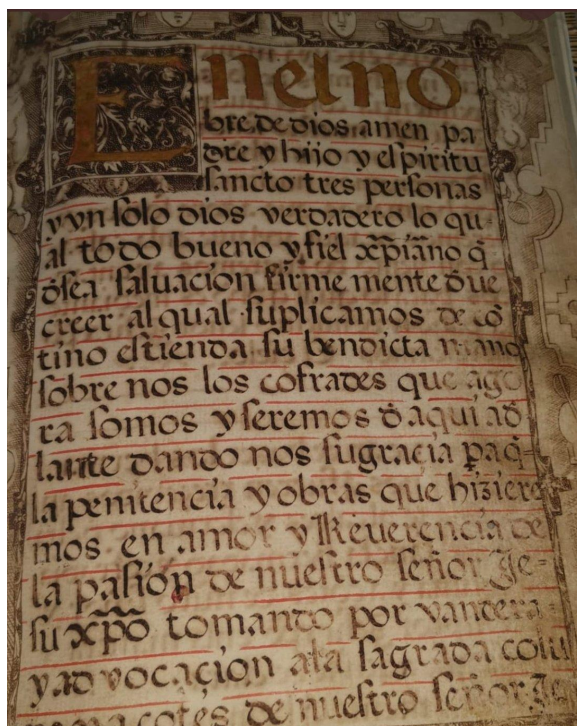 En el nō
bre de dios amen pa
dre y hijo y espiritu
sancto tres personas
y vn solo dios verdadero lo qu-
al todo bueno y fiel xp̄iano q̄
dsea saluacion firme mente due
creer al qual suplicamos de cō
tino estienda su bendicta mano
sobre nos los cofrades que ago
ra somos y seremos d aqui ad
lante dando nos su gracia paq̄
la penitencia y obras que hiziere
mos en amor y Reuerencia de
la pasion de nuestro señor Je-
su xp̄o tomando por vandera
y advocacion ala sagrada colu
cotes de nuestro señor Je